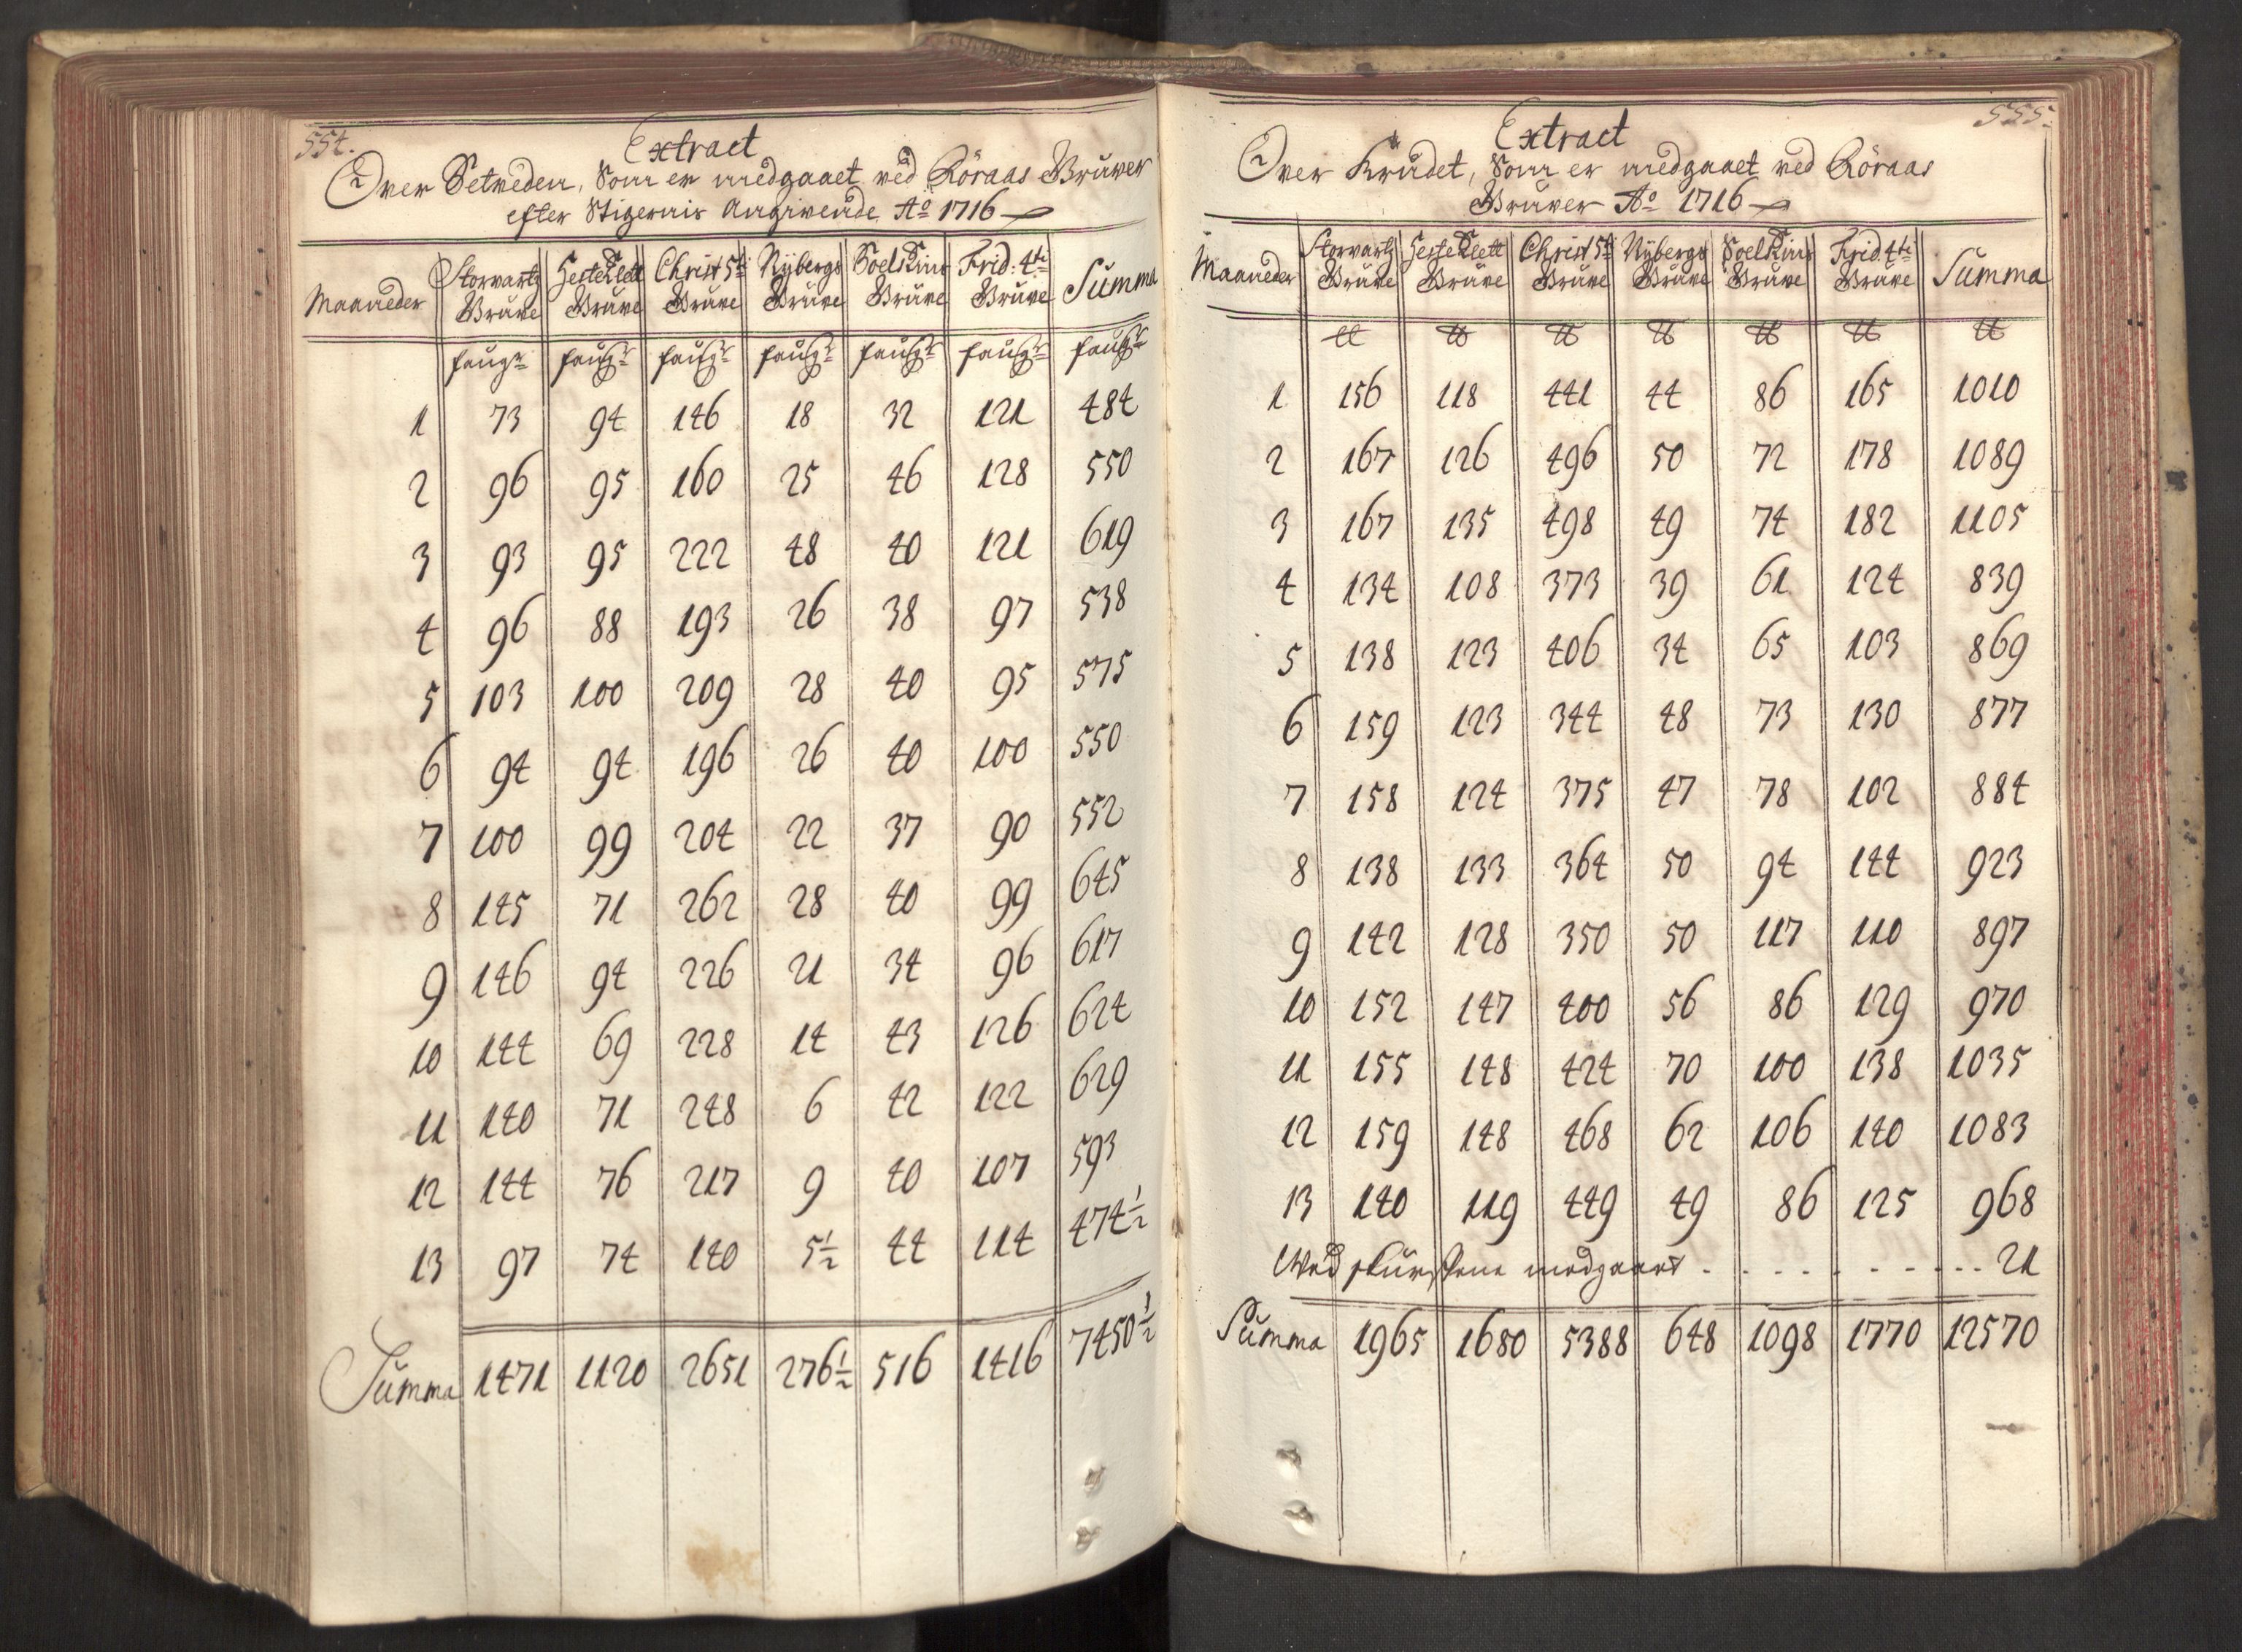 554.
Extract
Over Setveden, Som er medgaaet ved Röraas Gruver
efter Stigernis Angivende Ao 1716
Maaneder Storvartz Gruve HesteKlett Gruve Christ 5ti Gruve Nÿbergs Gruve Soelskins Gruve Frid: 4ti Gruve Summa
faugr faufgr faufgr faufgr faufgr faufgr faufgr
1 73 94 146 18 32 121 484
2 96 95 160 25 46 128 550
3 93 95 222 48 40 121 619
4 96 88 193 26 38 97 538
5 103 100 209 28 40 95 575
6 94 94 196 26 40 100 550
7 100 99 204 22 37 90 552
8 145 71 262 28 40 99 645
9 146 94 226 21 34 96 617
10 144 69 228 14 43 126 624
11 140 71 248 6 42 122 629
12 144 76 217 9 40 107 593
13 97 74 140 5½ 44 114 474½
Summa 1471 1120 2651 276½ 516 1416 7450½
555.
Extract
Over Krudet, Som er medgaaet ved Röraas
Gruver Ao 1716
Maaneder Storvartz Gruve HesteKlett Gruve Christ 5ti Gruve Nÿbergs Gruve Soelskins Gruve Frid. 4ti Gruve Summa
℔ ℔ ℔ ℔ ℔ ℔ ℔
1 156 118 441 44 86 165 1010
2 167 126 496 50 72 178 1089
3 167 135 498 49 74 182 1105
4 134 108 373 39 61 124 839
5 138 123 406 34 65 103 869
6 159 123 344 48 73 130 877
7 158 124 375 47 78 102 884
8 138 133 364 50 94 144 923
9 142 128 350 50 117 110 897
10 152 147 400 56 86 129 970
11 155 148 424 70 100 138 1035
12 159 148 468 62 106 140 1083
13 140 119 449 49 86 125 968
Wed medgaaet - - - - - - - - - - - 21
Summa 1965 1680 5388 648 1098 1770 12570